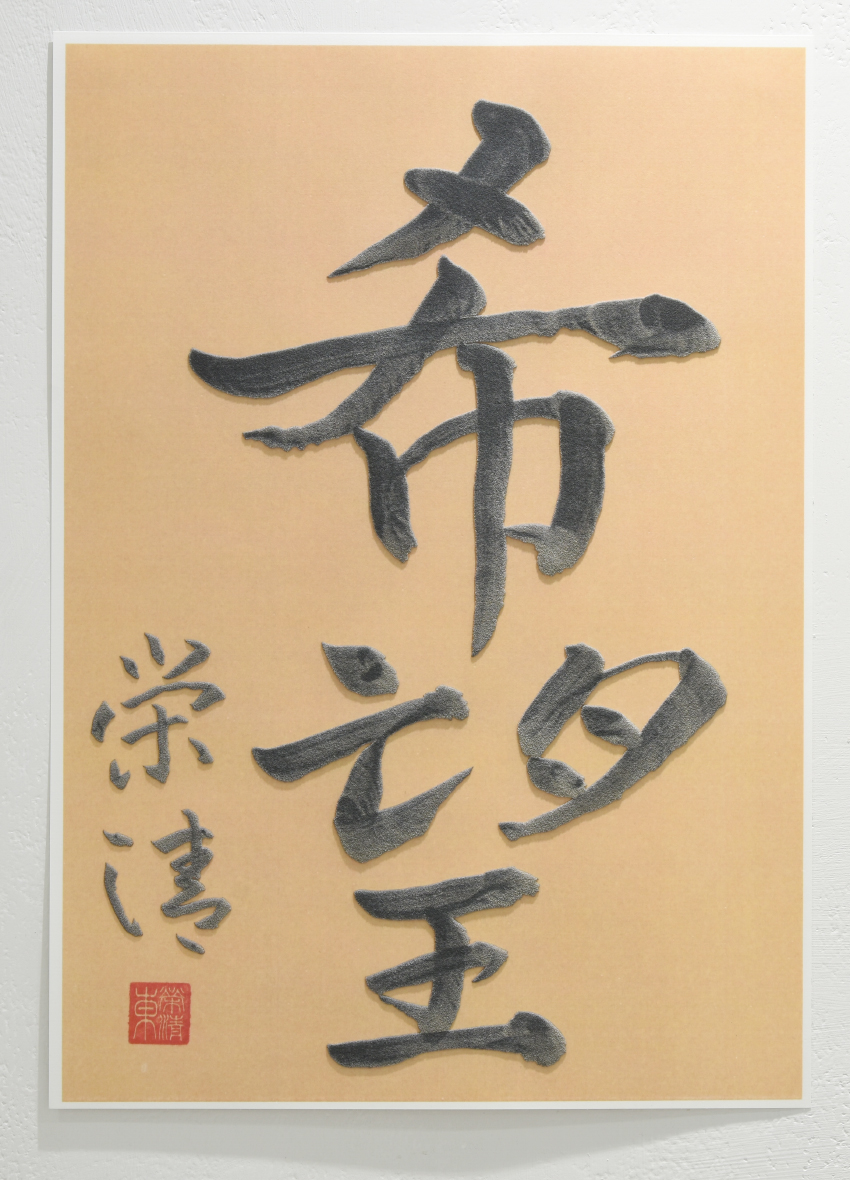 希望
栄清
榮清東